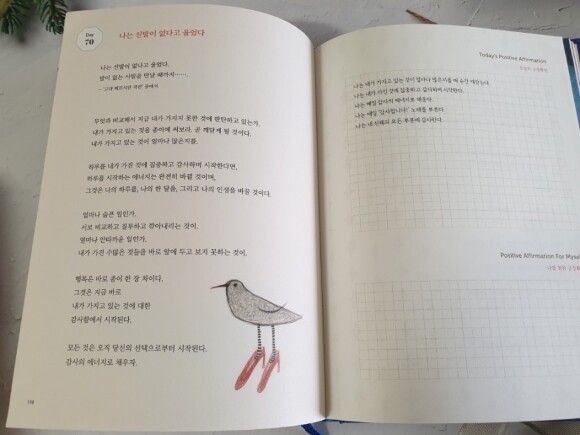 Day
70
나는 신발이 없다고 울었다
나는 신발이 없다고 울었다.
발이 없는 사람을 만날 때까지…….
무엇과 비교해서 지금 내가 가지지 못한 것에 한탄하고 있는가.
내가 가지고 있는 것을 종이에 써보라. 곧 깨닫게 될 것이다.
내가 가지고 있는 것이 얼마나 많은지를.
하루를 내가 가진 것에 집중하고 감사하며 시작한다면,
하루를 시작하는 에너지는 완전히 바뀔 것이며,
그것은 나의 하루를, 나의 한 달을, 그리고 나의 인생을 바꿀 것이다.
얼마나 슬픈 일인가.
서로 비교하고 질투하고 깎아내리는 것이.
얼마나 안타까운 일인가.
내가 가진 수많은 것들을 바로 앞에 두고 보지 못하는 것이.
행복은 바로 종이 한 장 차이다.
그것은 지금 바로
내가 가지고 있는 것에 대한
감사함에서 시작된다.
모든 것은 오직 당신의 선택으로부터 시작된다.
감사의 에너지로 채우자.
Today's Positive Affirmation
오늘의 긍정확언
나는 내가 가지고 있는 것이 얼마나 많은지를 매 순간 깨닫는다.
나는 내가 가진 것에 집중하고 감사하며 시작한다.
나는 매일 감사의 에너지로 채운다.
나는 매일 '감사합니다' 노래를 부른다.
나는 내 신체의 모든 부분에 감사한다.
Positive Affirmation For Myself
나를 위한 긍정확언